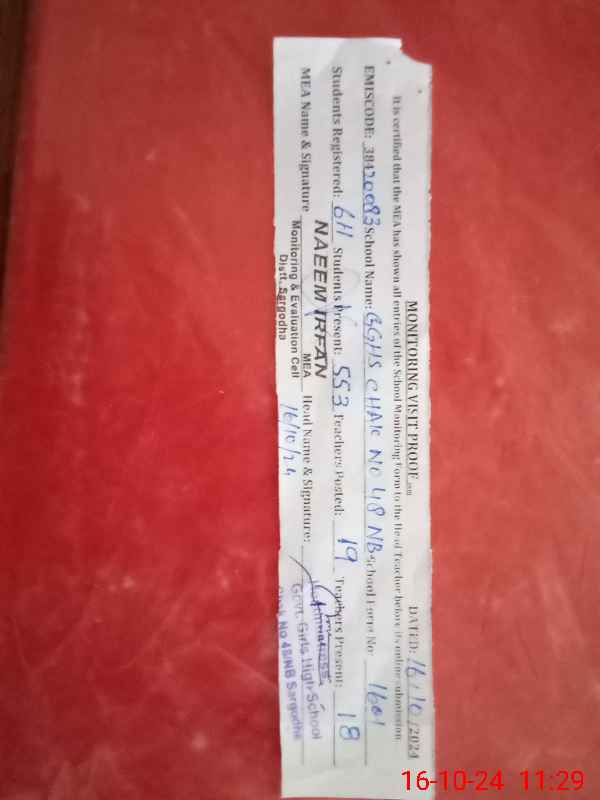 MONITORING VISIT PROOF
DATED: 16/10/2024
It is certified that the MEA has shown all entries of the School Monitoring Form to the Head Teacher before its online submission
EMISCODE: 38420083 School Name: GGHS CHAK NO 48 NB School Form No 1601
Students Registered: 611 Students Present: 553 Teachers Posted: 19 Teachers Present: 18
MEA Name & Signature NAEEM IRFAN Head Name & Signature:
MEA
Monitoring & Evaluation Cell
Distt. Sargodha
16/10/24
Headmistress
Govt. Girls High School
Chak No 48/NB Sargodha
16-10-24 11:29